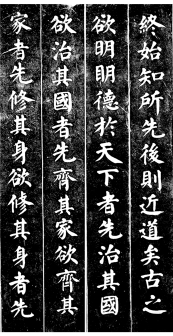 終始知所先後則近道矣古之
欲明明德於天下者先治其國
欲治其國者先齊其家欲齊其
家者先修其身欲修其身者先